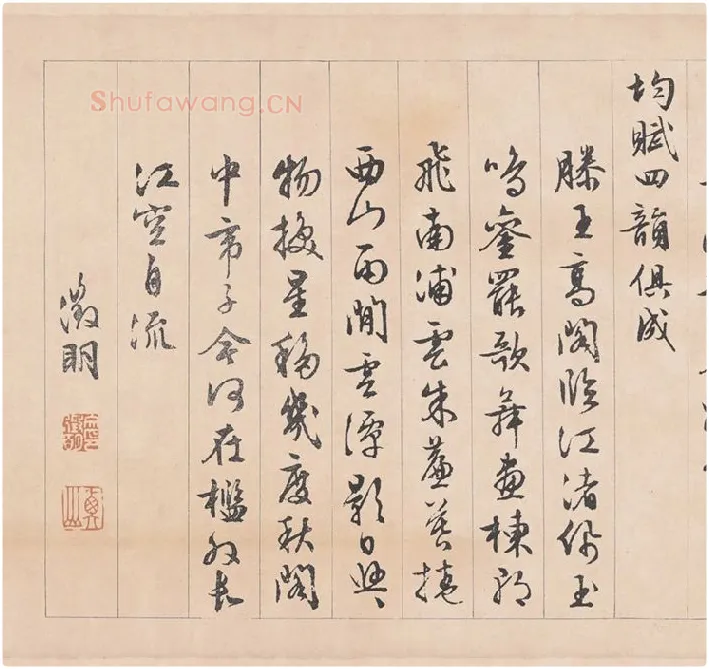 Shufawang.CN
均賦四韻俱成
滕王高閣臨江渚佩玉
鳴鑾罷歌舞畫棟朝
飛南浦雲朱簾暮捲
西山雨閒雲潭影日悠〻
物換星移幾度秋閣
中帝子今何在檻外長
江空自流
徵明
衡山